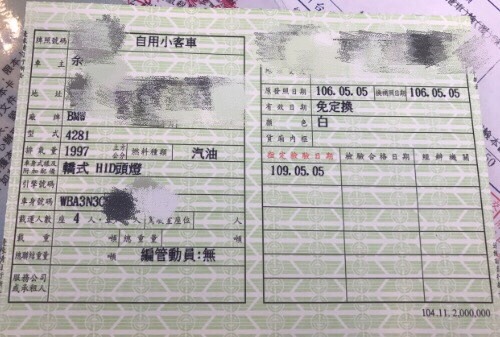 牌照號碼 自用小客車
車主 余
地址
廠牌 BMW
型式 4281
排氣量 1997 立方公分 燃料種類 汽油
車身式樣及附加配備 轎式 HID頭燈
引擎號碼
車身號碼 WBA3N3C
載運人數 座 4 人,立 人
載重 噸 總重量 噸
總聯結重量 噸 編管動員:無
服務公司或承租人
原發照日期 106.05.05 換補照日期 106.05.05
有效日期 免定換
顏色 白
貨廂內框
指定檢驗日期 檢驗合格日期 經辦機關
109.05.05
104.11.2,000,000